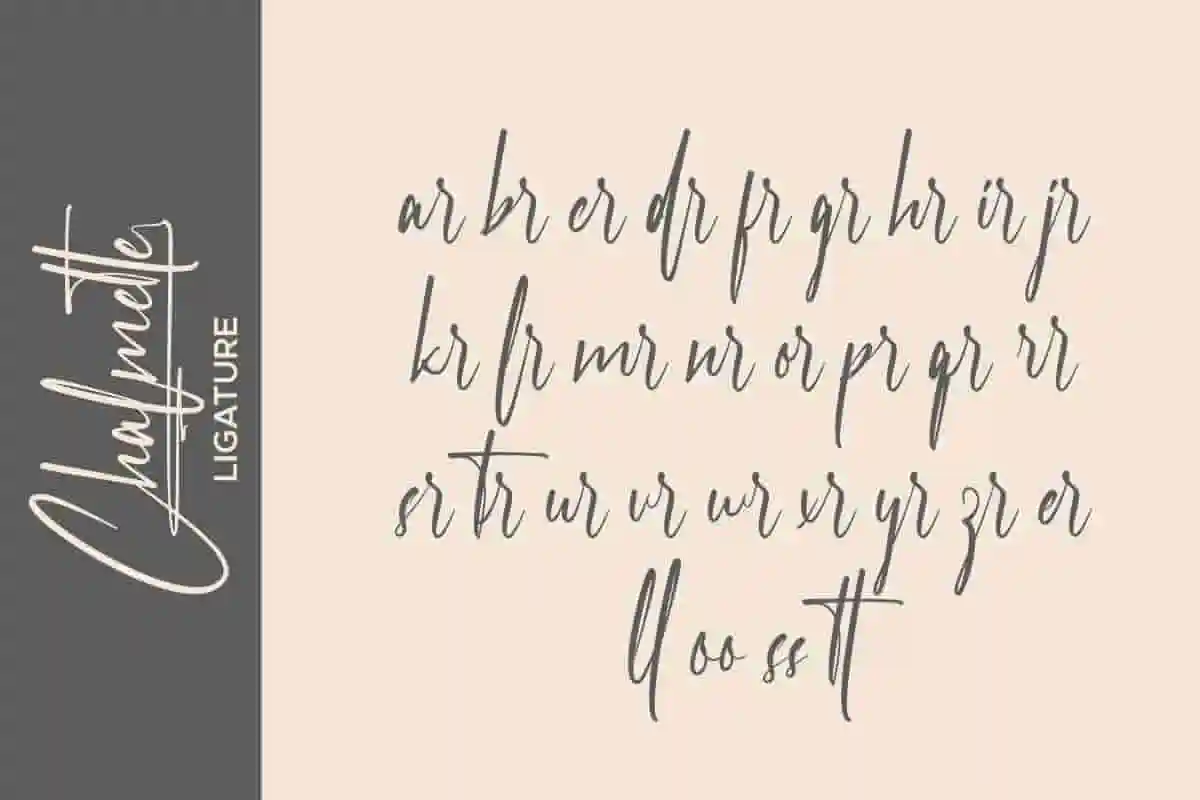 Chalmette
LIGATURE
ar br cr dr fr gr hr ir jr
kr lr mr nr or pr qr rr
sr tr ur vr wr xr yr zr er
ll oo ss tt